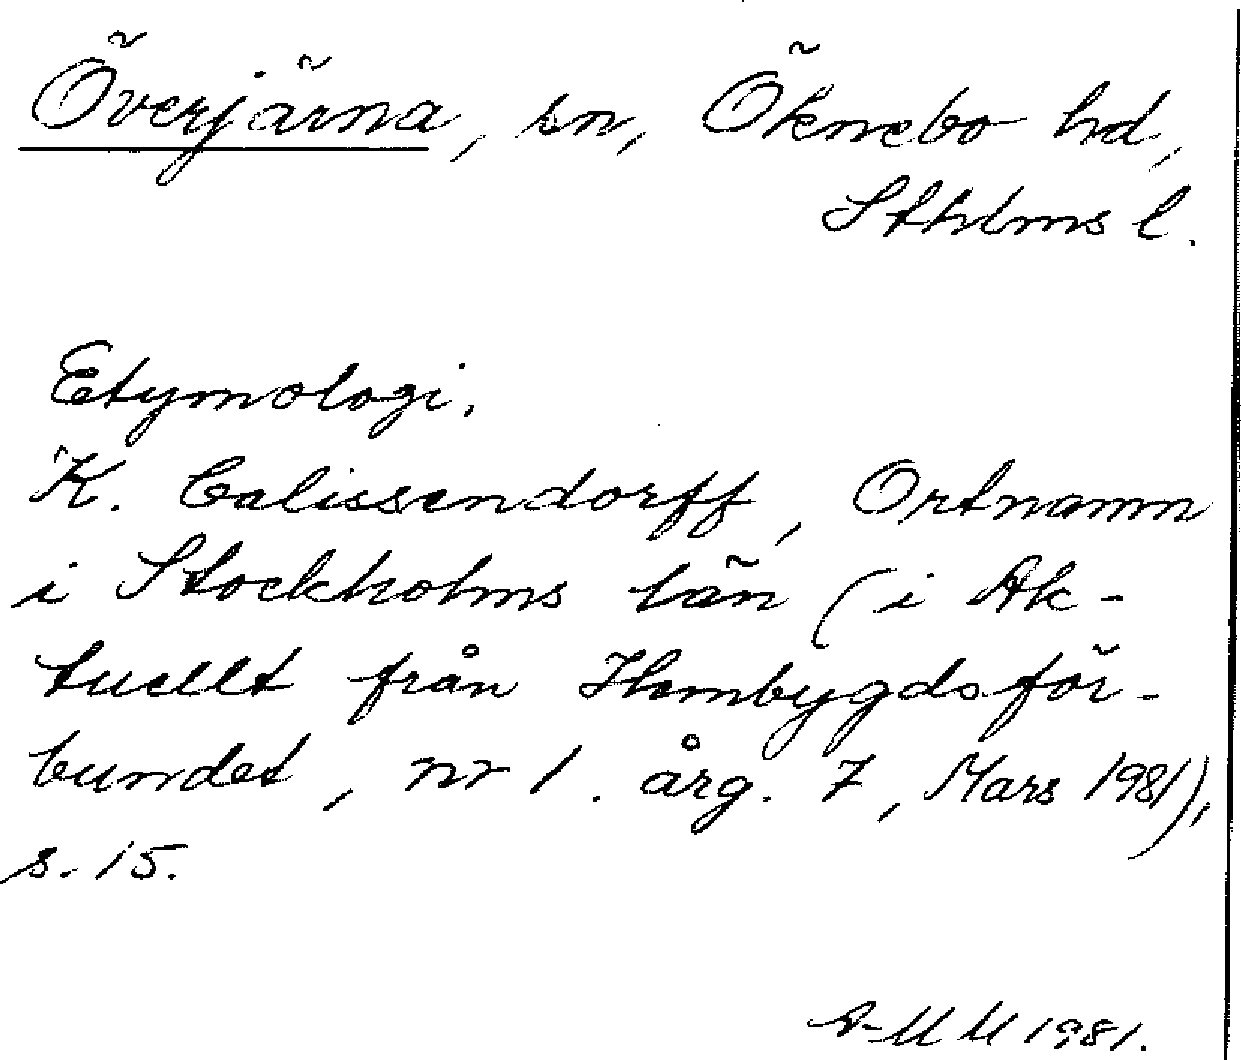 Överjärna, sn, Öknebo hd,
Sthlms l.
Etymologi.
K. Calissendorff, Ortnamn
i Stockholms län (i Ak-
tuellt från Hembygdsför-
bundet, nr 1. årg. 7, Mars 1981),
s. 15.
A-M M 1981.